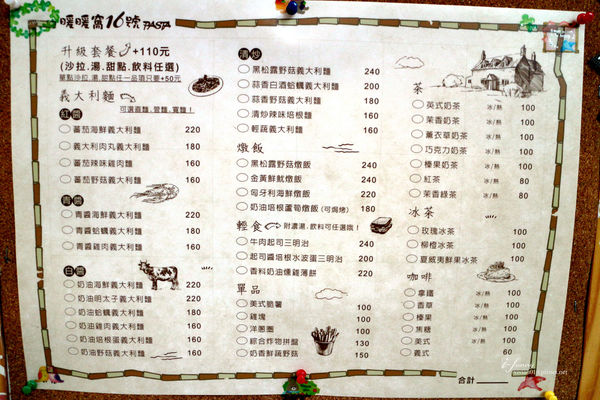 暖暖窩16號 PASTA
升級套餐 +110元
(沙拉.湯.甜點.飲料任選)
單點沙拉.湯.甜點任一品項只要+50元
義大利麵
可選直麵、筆管、寬麵!
紅醬
蕃茄海鮮義大利麵 220
義大利肉丸義大利麵 180
蕃茄辣味雞肉麵 160
蕃茄野菇義大利麵 160
青醬
青醬海鮮義大利麵 220
青醬蛤蠣義大利麵 180
青醬雞肉義大利麵 160
白醬
奶油海鮮義大利麵 220
奶油明太子義大利麵 220
奶油蛤蠣義大利麵 180
奶油雞肉義大利麵 160
奶油培根蛋義大利麵 160
奶油野菇義大利麵 160
清炒
黑松露野菇義大利麵 240
蒜香白酒蛤蠣義大利麵 200
蒜香野菇義大利麵 180
清炒辣味培根麵 160
輕蔬義大利麵 160
燉飯
黑松露野菇燉飯 240
金黃鮮魷燉飯 180
匈牙利海鮮燉飯 220
奶油培根蘆筍燉飯(可焗烤) 180
輕食 附濃湯、飲料可任選哦!
牛肉起司三明治 240
起司醬培根水波蛋三明治 220
香料奶油燻雞薄餅 220
單品
美式脆薯 100
雞塊 100
洋蔥圈 100
綜合炸物拼盤 130
奶香鮮蔬野菇 150
茶
英式奶茶 冰/熱 100
茉香奶茶 冰/熱 100
薰衣草奶茶 冰/熱 100
巧克力奶茶 冰/熱 100
榛果奶茶 冰/熱 100
紅茶 冰/熱 80
茉香綠茶 冰/熱 80
冰茶
玫瑰冰茶 100
柳橙冰茶 100
夏威夷鮮果冰茶 100
咖啡
拿鐵 冰/熱 100
香草 冰/熱 100
榛果 冰/熱 100
焦糖 冰/熱 100
美式 冰/熱 100
義式 60
合計